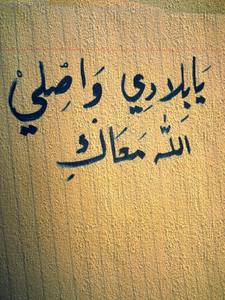 يَابِلادِي وَاصِليْ
اللّٰه مَعَاكِ